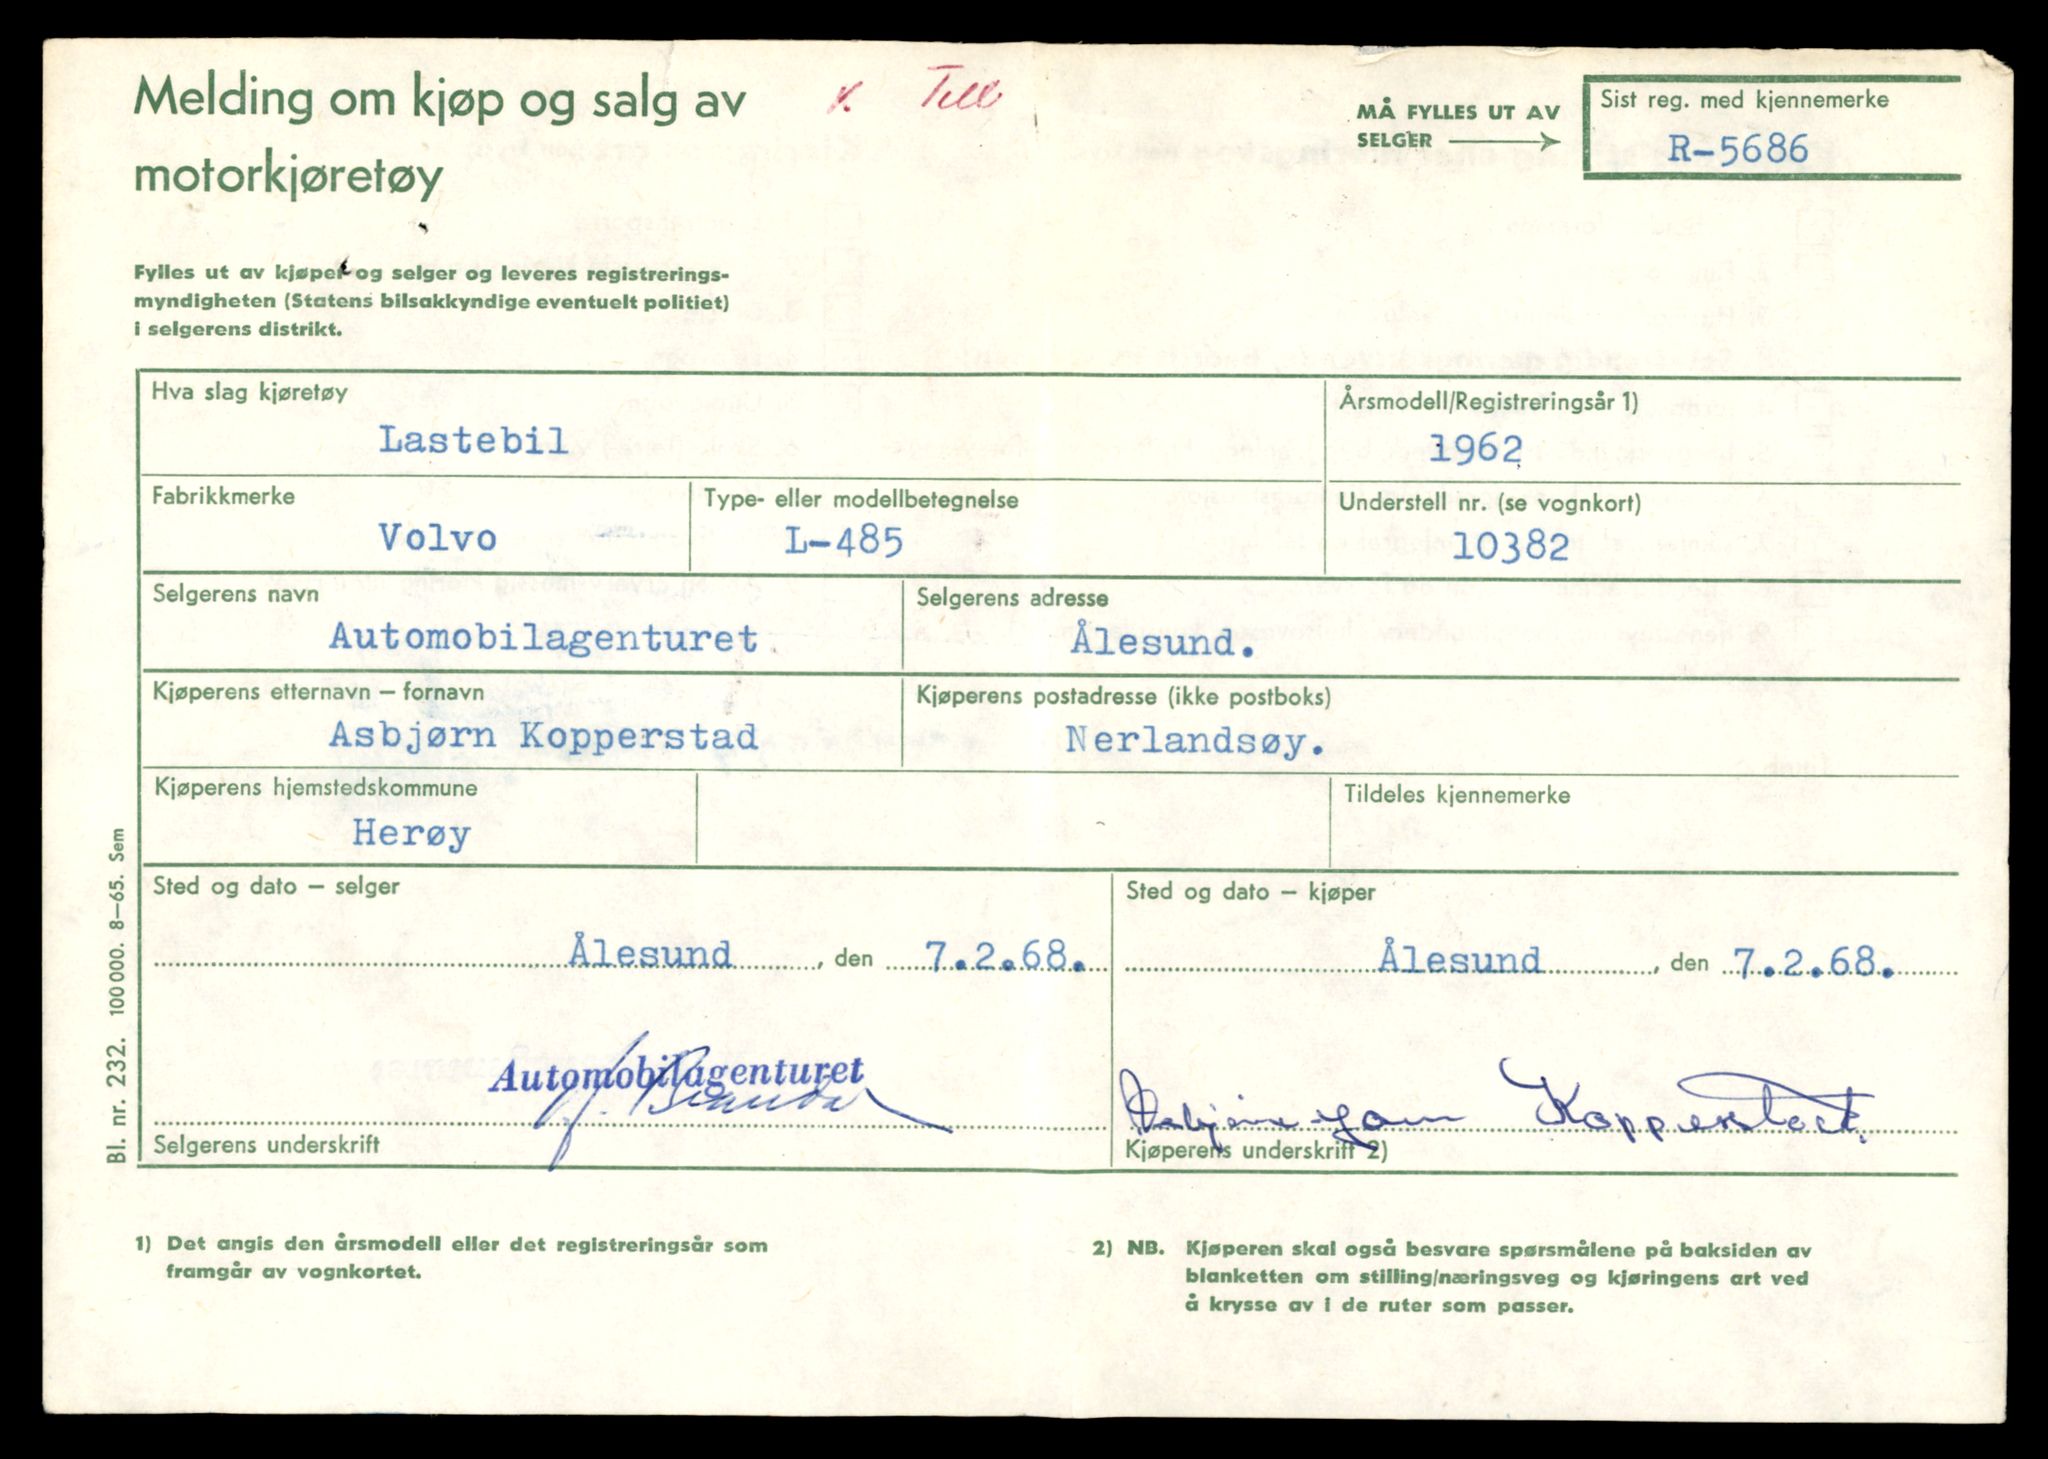 Melding om kjøp og salg av
motorkjøretøy
K. Till
MÅ FYLLES UT AV
SELGER
Sist reg. med kjennemerke
R-5686
Fylles ut av kjøper og selger og leveres registrerings-
myndigheten (Statens bilsakkyndige eventuelt politiet)
i selgerens distrikt.
Hva slag kjøretøy
Lastebil
Årsmodell/Registreringsår 1)
1962
Fabrikkmerke
Volvo
Type- eller modellbetegnelse
L-485
Understell nr. (se vognkort)
10382
Selgerens navn
Automobilagenturet
Selgerens adresse
Ålesund.
Kjøperens etternavn – fornavn
Asbjørn Kopperstad
Kjøperens postadresse (ikke postboks)
Nerlandsøy.
Kjøperens hjemstedskommune
Herøy
Tildeles kjennemerke
Sted og dato – selger
Ålesund, den 7.2.68.
Automobilagenturet
Selgerens underskrift
Sted og dato – kjøper
Ålesund, den 7.2.68.
Kopperstad
Kjøperens underskrift 2)
Bl. nr. 232. 100 000. 8–65. Sem
1) Det angis den årsmodell eller det registreringsår som
framgår av vognkortet.
2) NB. Kjøperen skal også besvare spørsmålene på baksiden av
blanketten om stilling/næringsveg og kjøringens art ved
å krysse av i de ruter som passer.